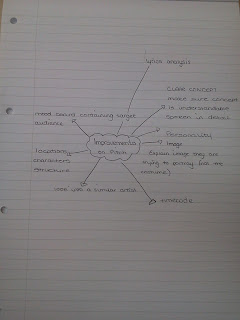 lyrics analysis
CLEAR CONCEPT
make sure concept
is understandable
spoken in detail
mood board containing target
audience
Personality
Improvements
on Pitch
Image
Explain image they are
trying to portray (use the
costume)
location
characters
structure
look into a similar artist
timecode